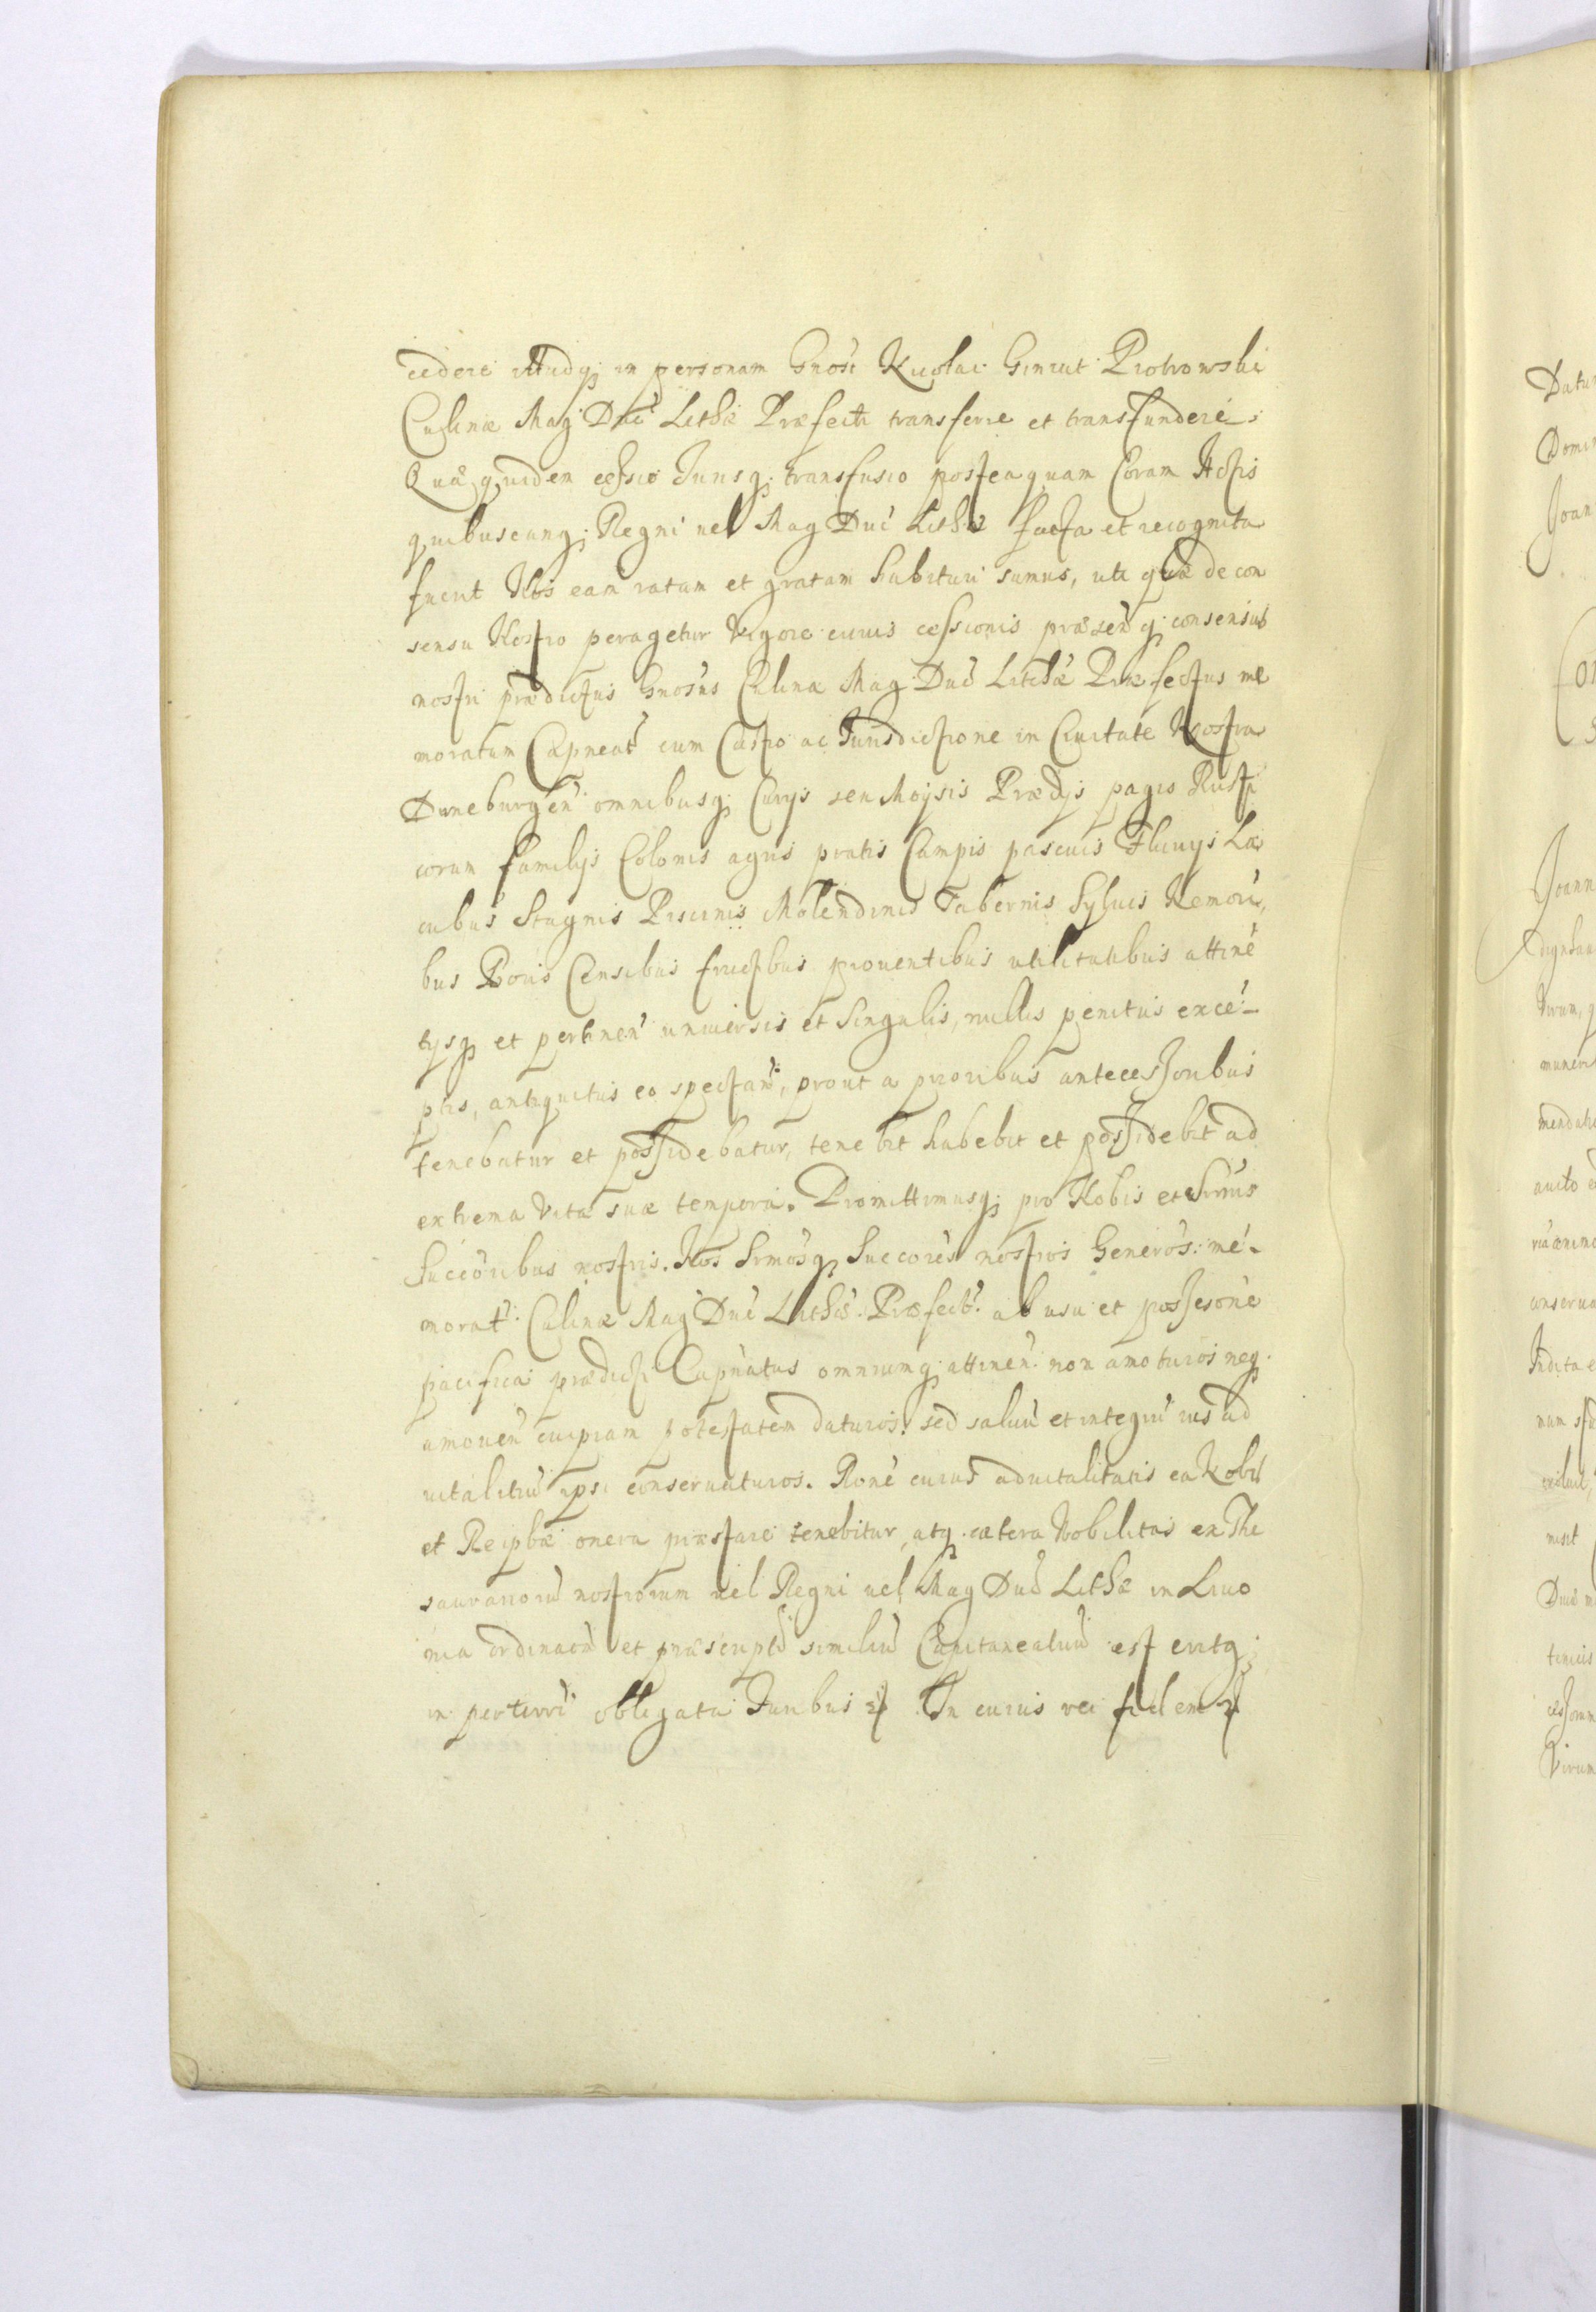 cedere illudq; in personam Gnosi Nicolai Gintut Piotrowski
Culinæ Mag Duc Lithæ Præfecti transferre et transfundere.
Quæ quidem cessio Iurisq; transfusio posteaquam Coram Actis
quibuscunq; Regni uel Mag Duc Lithæ facta et recognita
fuerit Nos eam ratam et gratam habituri sumus, uti quæ de con
sensu Nostro peragetur Vigore cuius cessionis præsen q; consensus
nostri prædictus Gnosus Culinæ Mag Duc Lithæ Præfectus me
moratum Capneat cum Castro ac Iurisdictione in Ciuitate Nostra
Duneburgen omnibusq; Curijs seu Moysis Prædijs pagis Rusti
corum familijs Colonis agris pratis Campis pascuis Fluuijs La
cubus Stagnis Piscinis Molendinis Tabernis Syluis Nemori,
bus Boris Censibus fructibus prouentibus utilitatibus attine
tijsq; et pertinen uniuersis et singulis, nullis penitus exce-
ptis, antiquitus eo spectan, prout a prioribus antecessoribus
tenebatur et possidebatur, tenebit habebit et possidebit ad
extrema Vitæ suæ tempora. Promittimusq; pro Nobis et Srmis
Succoribus nostris. Nos Srmosq; Succores nostros Generos: me-
morat: Culinæ Mag Duc Lithæ Præfect: ab usu et possesone
pacifica prædicti Capnatus omniumq; attinen: non amoturos neq;
amouen cuipiam potestatem daturos: sed saluu et integru ius ad
uitalitiu ipsi conseruaturos. Rone cuius aduitalitatis ea Nobis
et Reipbæ onera præstare tenebitur, atq; cætera Nobilitas ex The
saurarioru nostrorum uel Regni uel Mag Duc Lithæ in Liuo
nia ordinaon et præscripto similiu Capitaneatuu est eritq;
in perterri obligata Iuribus In cuius rei fidem